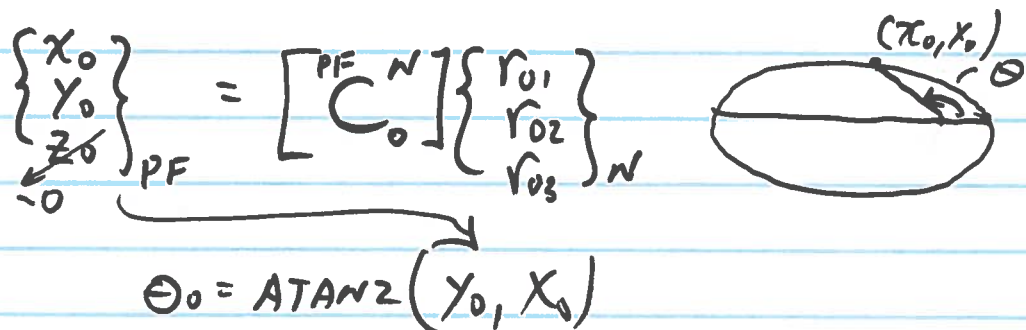 {x₀ y₀ z₀}PF = [PF C₀ N] {r₀₁ r₀₂ r₀₃}N
~0
(x₀, y₀)
θ
θ₀ = ATAN2(y₀, x₀)